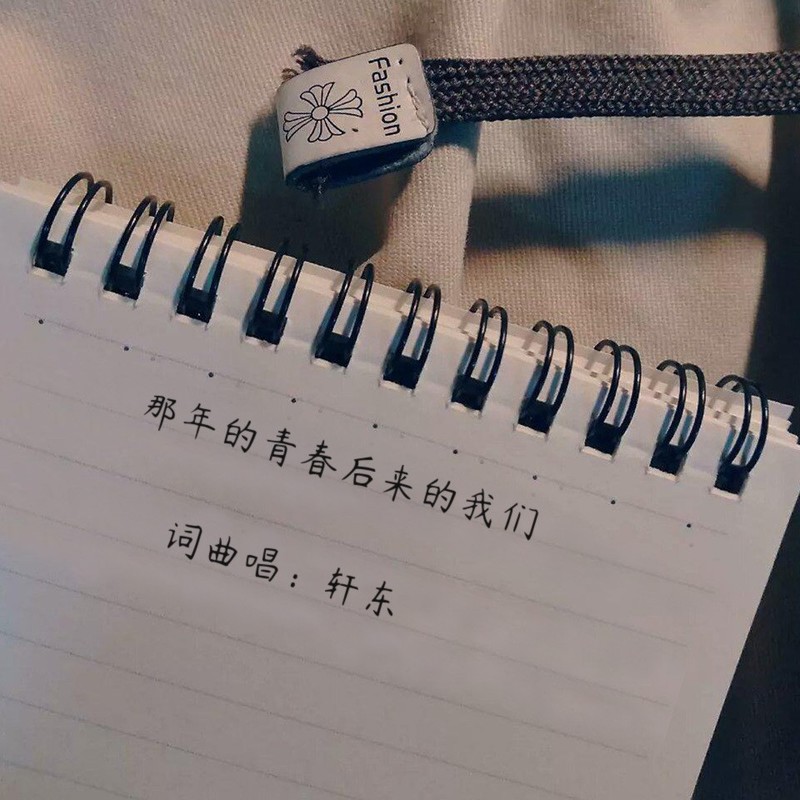 Fashion
那年的青春后来的我们
词曲唱：轩东